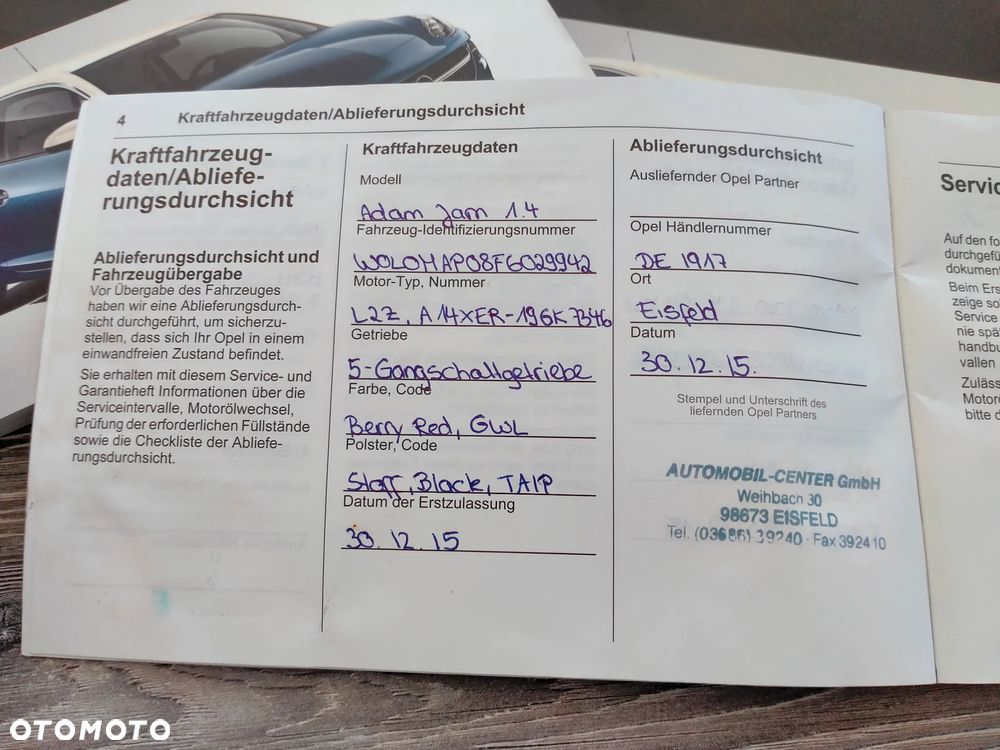 4 Kraftfahrzeugdaten/Ablieferungsdurchsicht
Kraftfahrzeug-
daten/Abliefe-
rungsdurchsicht
Ablieferungsdurchsicht und
Fahrzeugübergabe
Vor Übergabe des Fahrzeuges
haben wir eine Ablieferungsdurch-
sicht durchgeführt, um sicherzu-
stellen, dass sich Ihr Opel in einem
einwandfreien Zustand befindet.
Sie erhalten mit diesem Service- und
Garantieheft Informationen über die
Serviceintervalle, Motorölwechsel,
Prüfung der erforderlichen Füllstände
sowie die Checkliste der Abliefe-
rungsdurchsicht.
Kraftfahrzeugdaten
Modell
Adam Jam 1.4
Fahrzeug-Identifizierungsnummer
W0L0MAP08F6029942
Motor-Typ, Nummer
L2Z, A14XER-196K7346
Getriebe
5-Gangschaltgetriebe
Farbe, Code
Berry Red, GWL
Polster, Code
Stoff, Black, TAIP
Datum der Erstzulassung
30.12.15
Ablieferungsdurchsicht
Ausliefernder Opel Partner
Opel Händlernummer
DE 1917
Ort
Eisfeld
Datum
30.12.15.
Stempel und Unterschrift des
liefernden Opel Partners
AUTOMOBIL-CENTER GmbH
Weihbach 30
98673 EISFELD
Tel. (03686) 39240 · Fax 392410
Servic
Auf den fo
durchgefü
dokument
Beim Ers
zeige so
Service
nie spä
handbu
vallen
Zuläss
Motorö
bitte d
OTOMOTO